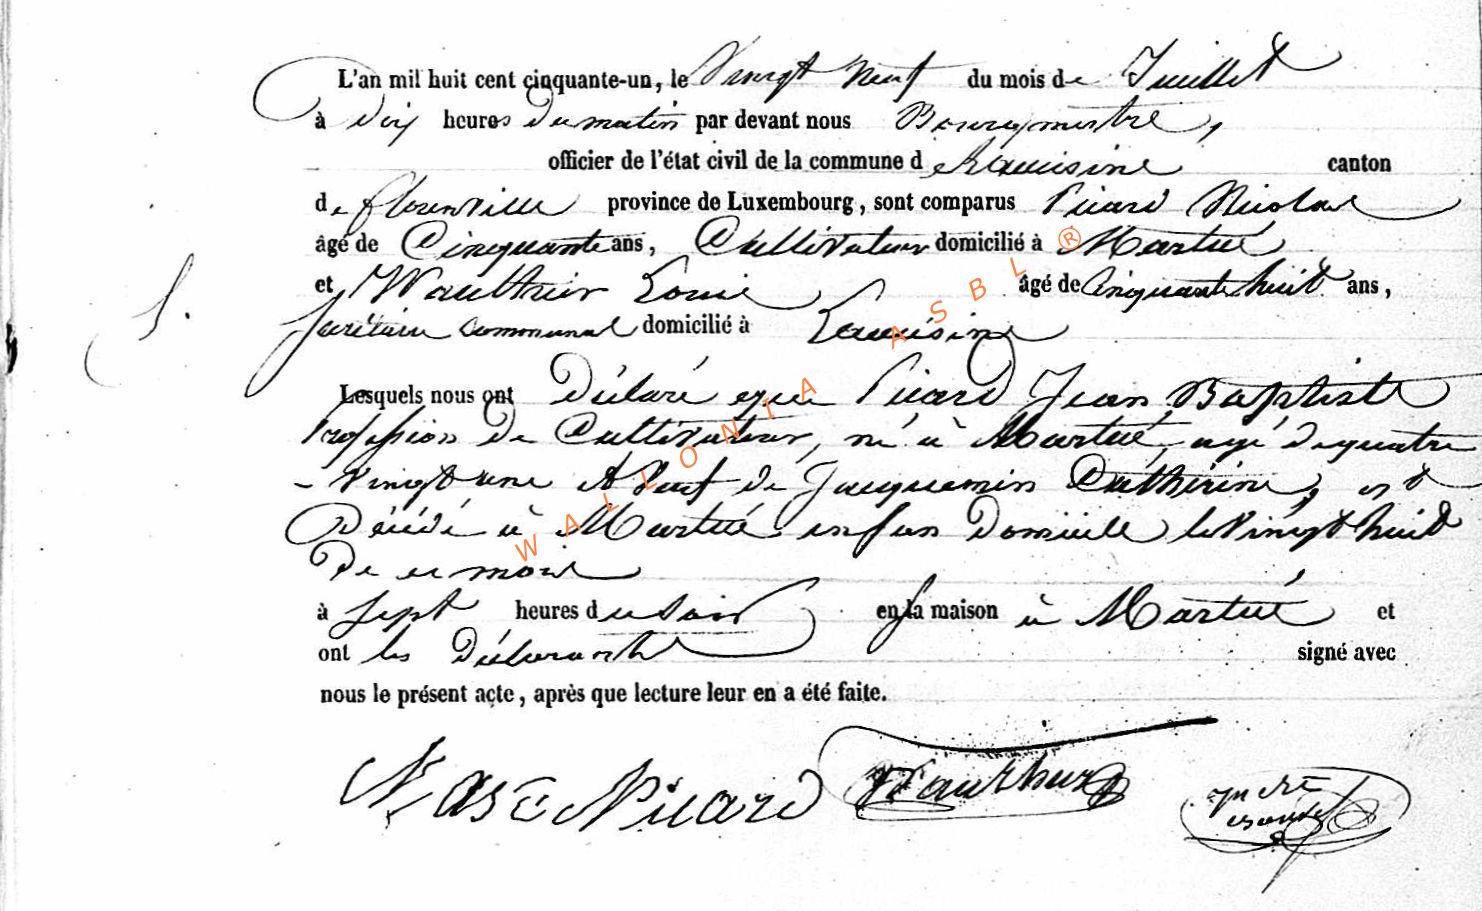 L'an mil huit cent cinquante-un, le Vingt neuf du mois de Juillet
à dix heures du matin par devant nous Bourgmestre,
officier de l'état civil de la commune de Lacuisine canton
de florenville province de Luxembourg, sont comparus Picard Nicolas
âgé de Cinquante ans, Cultivateur domicilié à Martué
et Wauthier Louis âgé de Cinquante huit ans,
Secrétaire communal domicilié à Lacuisine
Lesquels nous ont Déclaré que Picard Jean Baptiste
Profession de Cultivateur, né à Martué, agé de quatre
- vingt une A Veuf de Jacquemin Cathérine, est
Décédé à Martué en son Domicile le vingt huit
De ce mois
à sept heures du soir en la maison à Martué et
ont les Déclarants signé avec
nous le présent acte, après que lecture leur en a été faite.
Picard Wauthier
WALLONIA ASBL ®